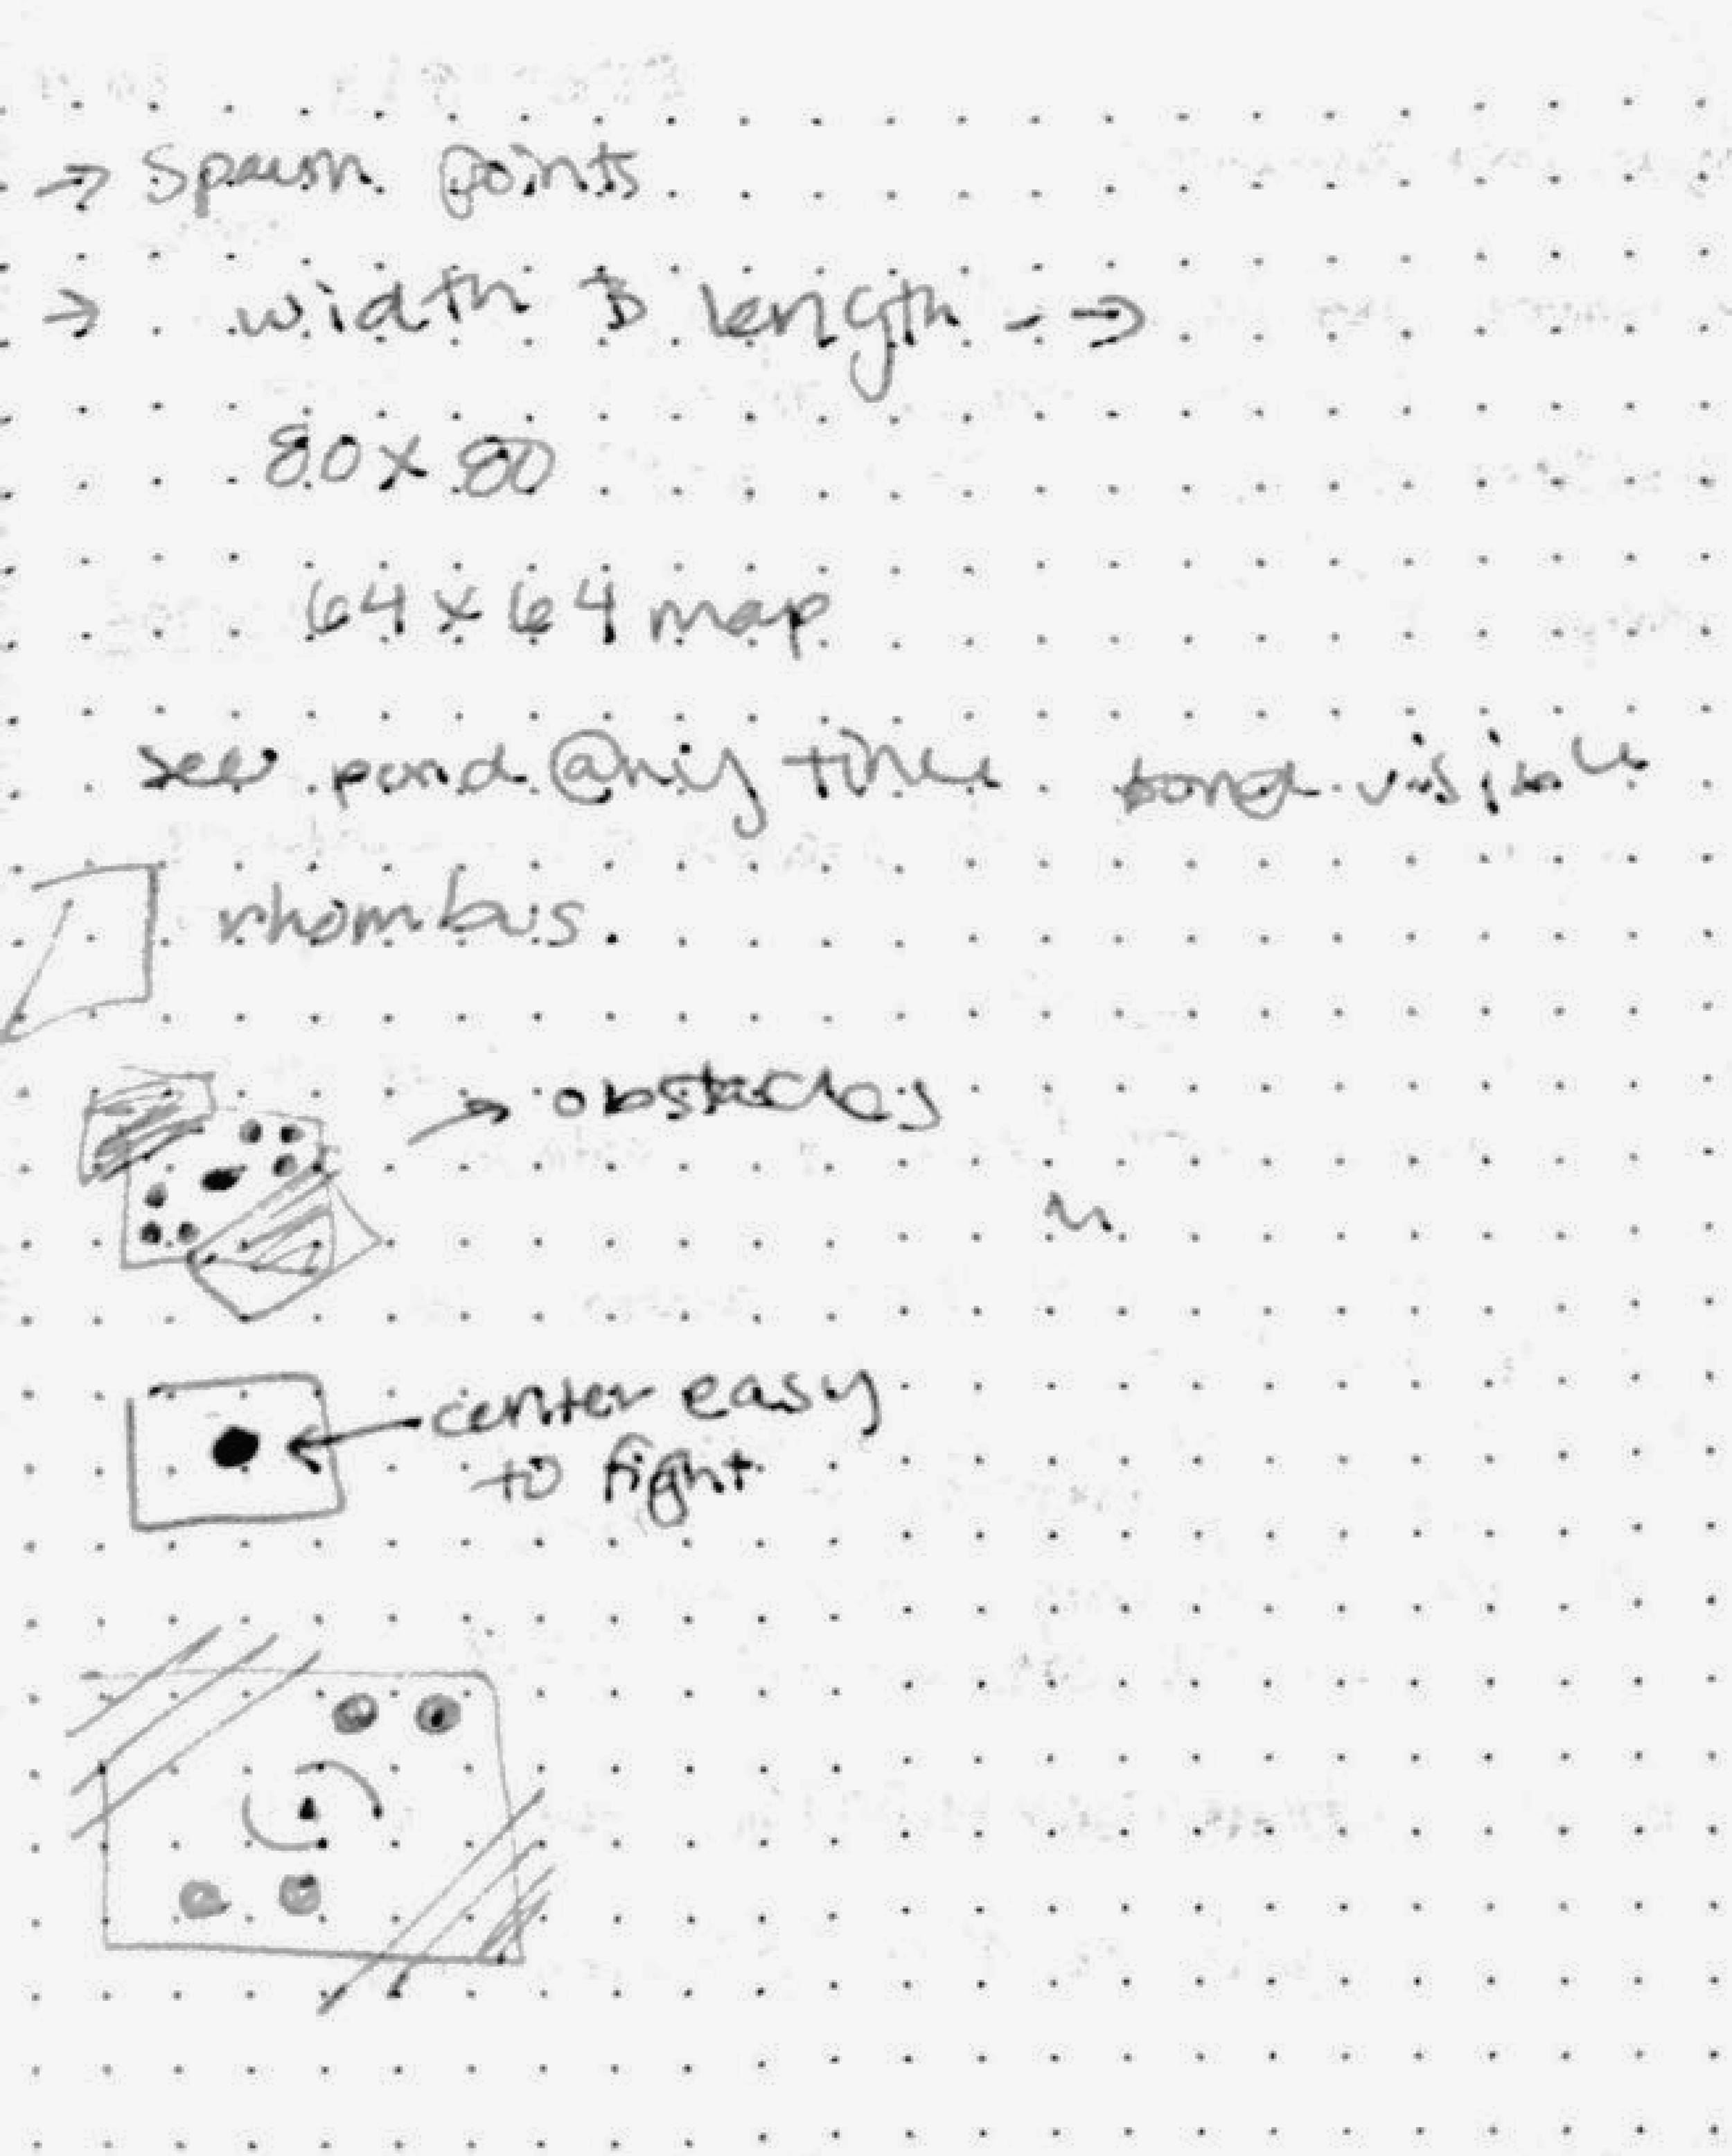 → Spawn points
→ width & length - →
80 x 80
64 x 64 map
see pond @ny time pond visible
rhombus
→ obstacles
center easy
to fight